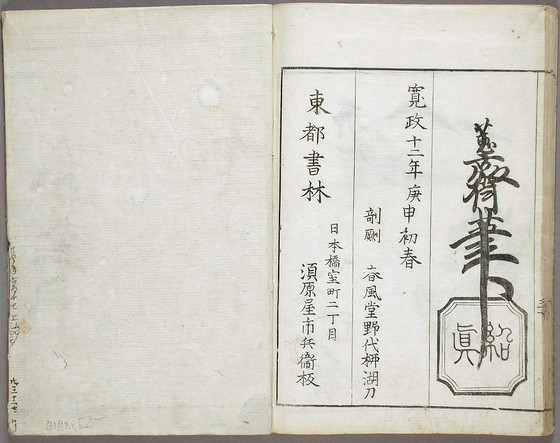 蕙齋筆
紹眞
寛政十二年庚申初春
剞劂 春風堂野代柳湖刀
東都書林
日本橋室町二丁目
須原屋市兵衞板